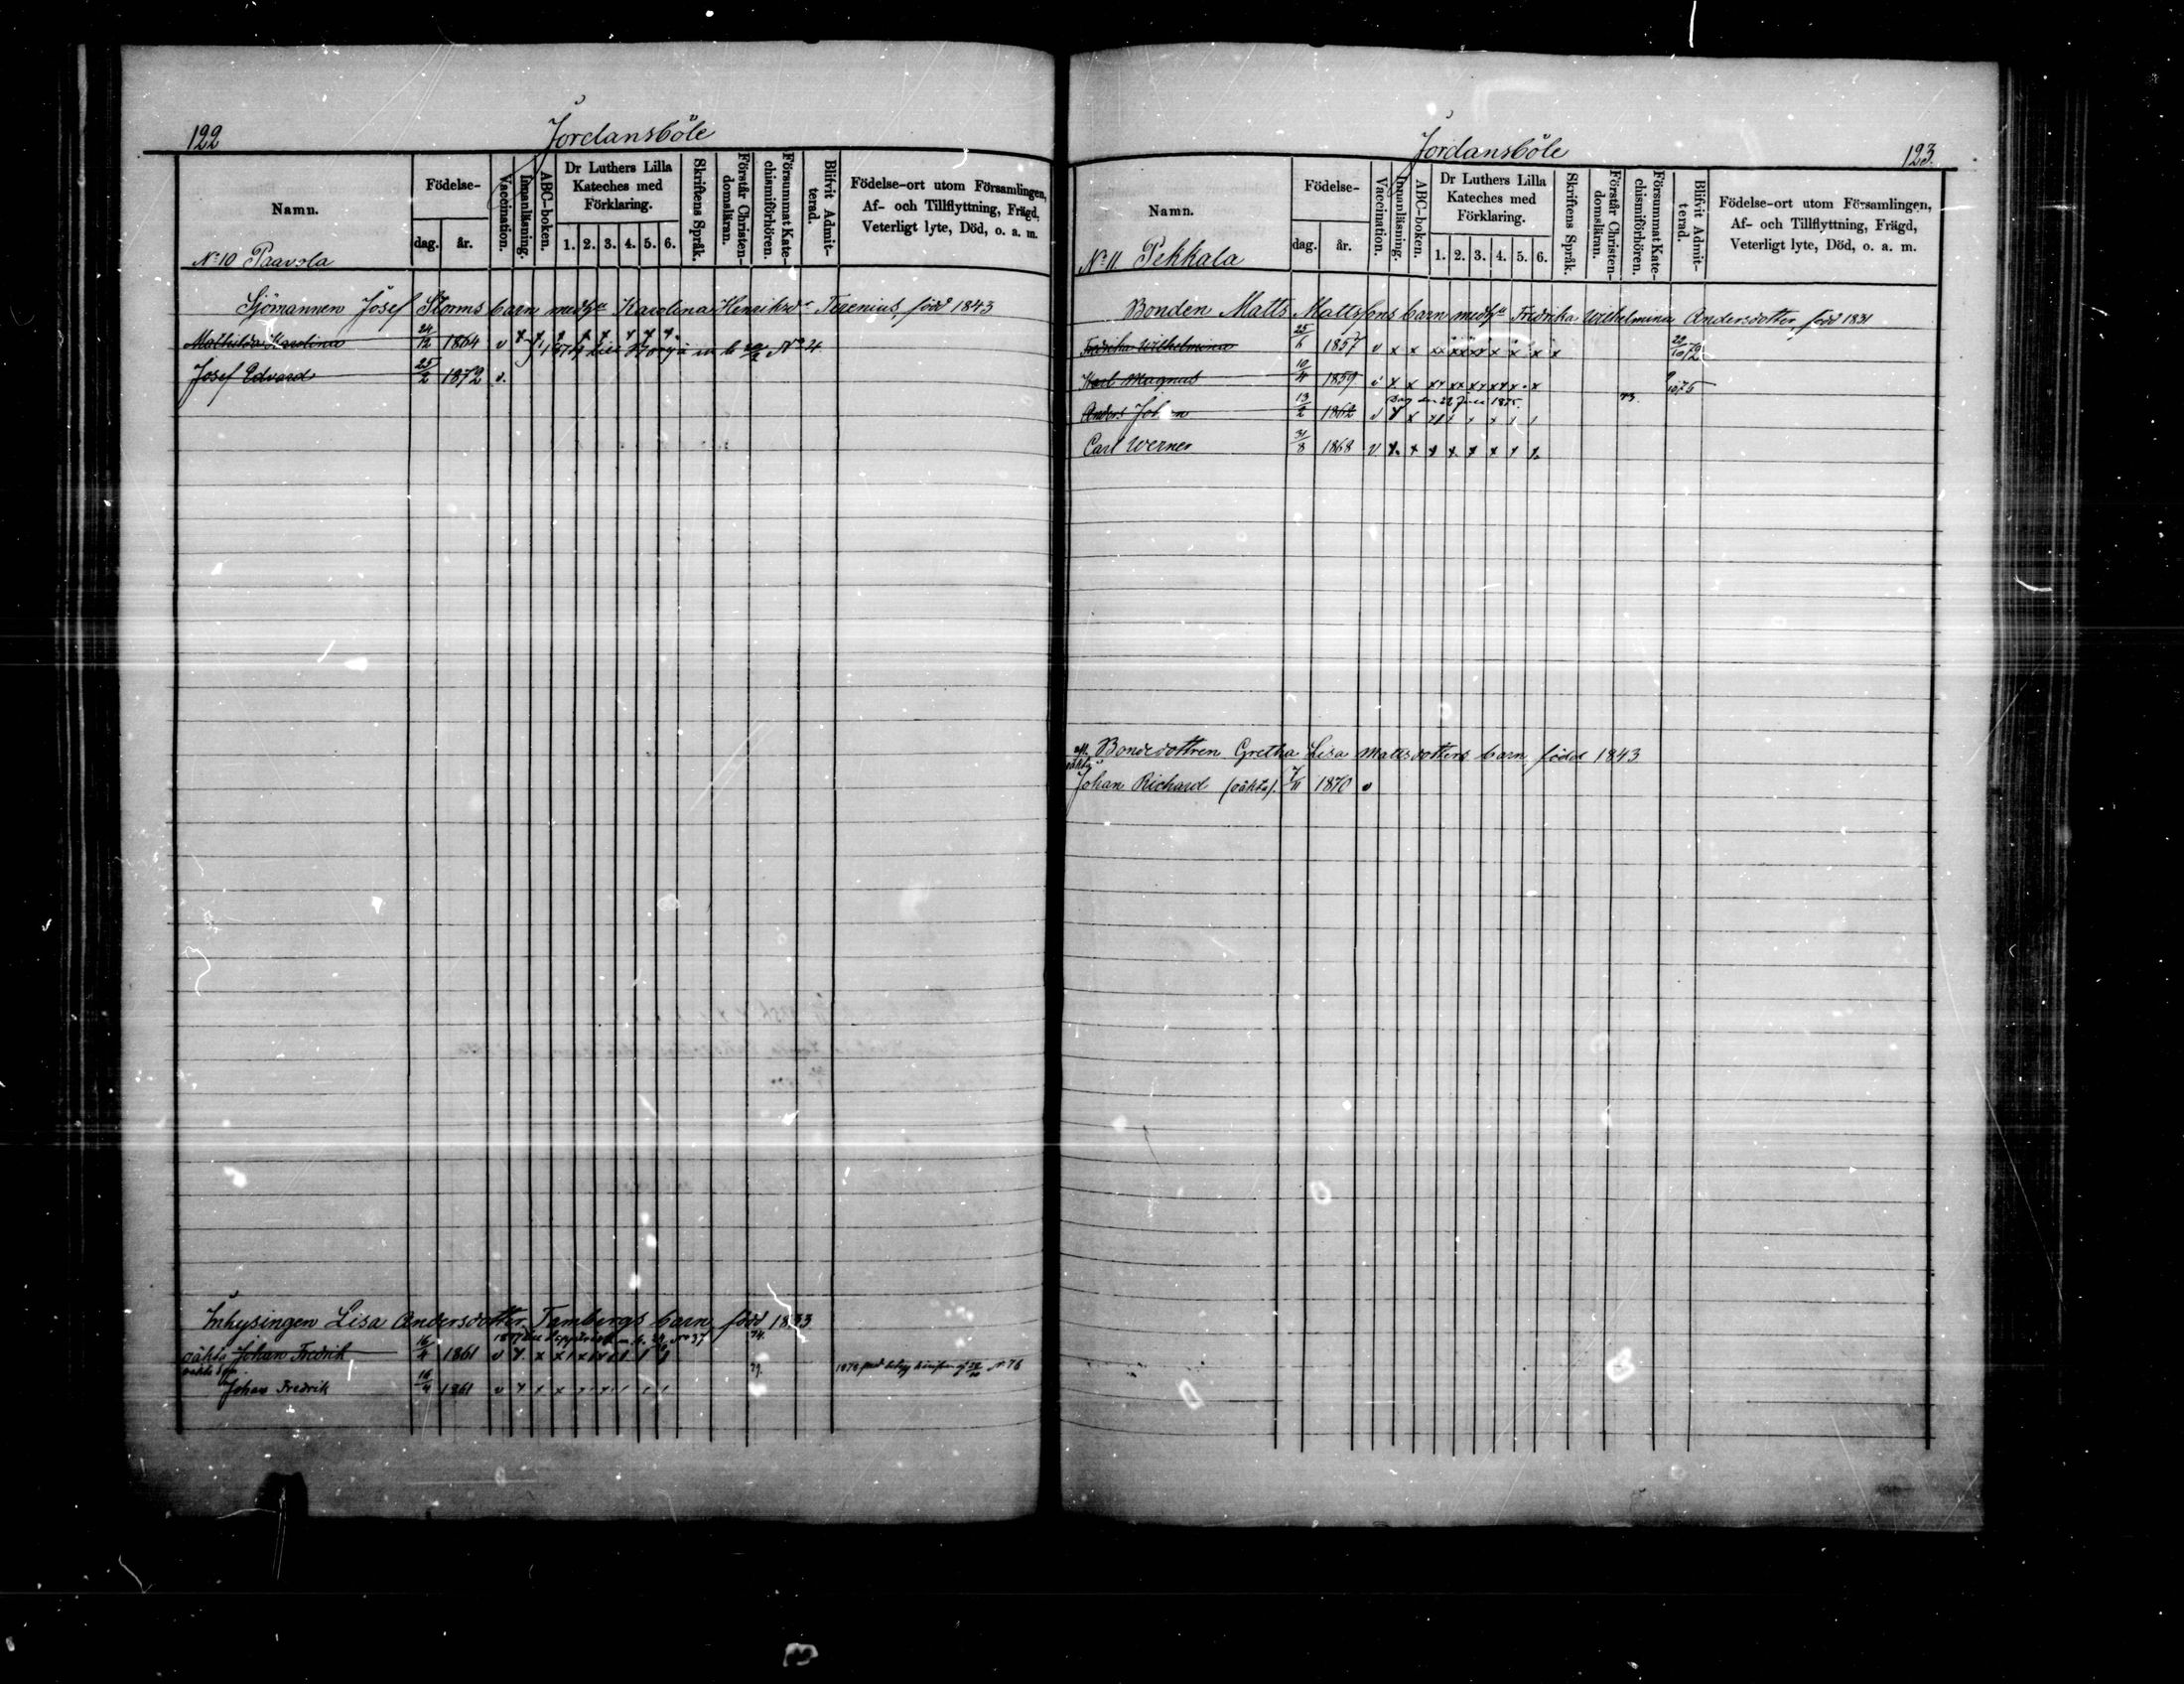 122
Jordansböle
Namn.
Födelse-
dag.
år.
Vaccination.
Innanläsning.
ABC-boken.
Dr Luthers Lilla
Kateches med
Förklaring.
1. 2. 3. 4. 5. 6.
Skriftens Språk.
Förstår Christen-
domsläran.
Försummat Kate-
chismiförhören.
Blifvit Admit-
terad.
Födelse-ort utom Församlingen,
Af- och Tillflyttning, Frägd,
Veterligt lyte, Död, o. a. m.
No 10 Paavola
Sjömannen Josef Storms barn med Karolina Henriksdr född 1843
Mathilda Karolina 24/12 1864 v
Josef Edvard 25/2 1872 v.
Inhysingen Lisa Andersdotter Tambergs barn född 1833
74.
oäkta Johan Fredrik 16/4 1861 v x x
oäkta
Johan Fredrik 16/4 1861 v x x x
Jordansböle
123.
Namn.
Födelse-
dag.
år.
Vaccination.
Innanläsning.
ABC-boken.
Dr Luthers Lilla
Kateches med
Förklaring.
1. 2. 3. 4. 5. 6.
Skriftens Språk.
Förstår Christen-
domsläran.
Försummat Kate-
chismiförhören.
Blifvit Admit-
terad.
Födelse-ort utom Församlingen,
Af- och Tillflyttning, Frägd,
Veterligt lyte, Död, o. a. m.
No 11 Pekkala
Bonden Matts Mattssons barn med Fredrika Wilhelmina Andersdotter, född 1831
Fredrika Wilhelmina 25/6 1857 v x x xx xx xx x x x x
Karl Magnus 10/4 1859 v x x xx xx xx xx x x 1875
Anders Johan 13/2 1862 v x x
Carl Werner 31/8 1868 v x x x x x x x x
Bondedottren Gretha Lisa Mattsdotters barn, född 1843
Johan Richard (oäkta). 7/11 1870 v